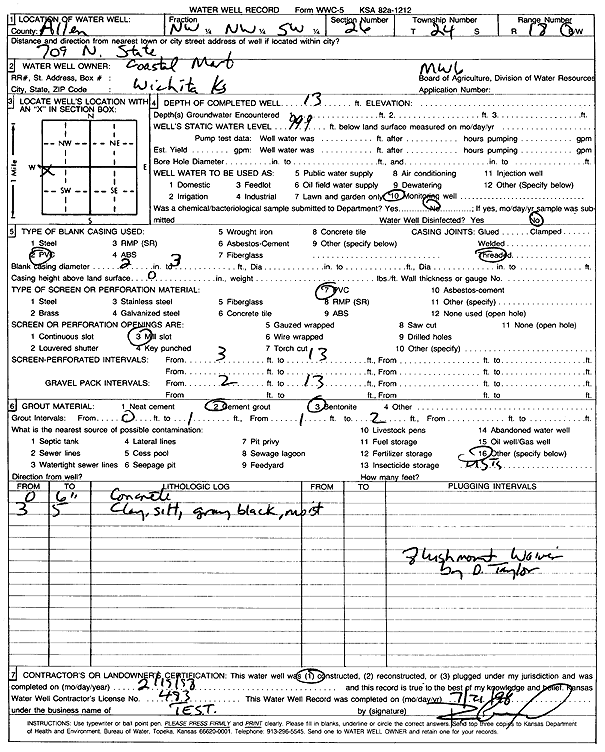 WATER WELL RECORD Form WWC-5 KSA 82a-1212
1 LOCATION OF WATER WELL: Fraction Section Number Township Number Range Number
County: Allen NW ¼ NW ¼ SW ¼ 26 T 24 S R 18 E/W
Distance and direction from nearest town or city street address of well if located within city?
709 N. State
2 WATER WELL OWNER: Coastal Mart MW6
RR#, St. Address, Box # : Board of Agriculture, Division of Water Resources
City, State, ZIP Code : Wichita Ks Application Number:
3 LOCATE WELL'S LOCATION WITH AN "X" IN SECTION BOX:
N
NW NE
W X E
SW SE
S
1 Mile
4 DEPTH OF COMPLETED WELL 13 ft. ELEVATION:
Depth(s) Groundwater Encountered 1. ft. 2. ft. 3. ft.
WELL'S STATIC WATER LEVEL 999 ft. below land surface measured on mo/day/yr
Pump test data: Well water was ft. after hours pumping gpm
Est. Yield gpm: Well water was ft. after hours pumping gpm
Bore Hole Diameter in. to ft., and in. to ft.
WELL WATER TO BE USED AS: 5 Public water supply 8 Air conditioning 11 Injection well
1 Domestic 3 Feedlot 6 Oil field water supply 9 Dewatering 12 Other (Specify below)
2 Irrigation 4 Industrial 7 Lawn and garden only 10 Monitoring well
Was a chemical/bacteriological sample submitted to Department? Yes No ; If yes, mo/day/yr sample was submitted Water Well Disinfected? Yes No
5 TYPE OF BLANK CASING USED: 5 Wrought iron 8 Concrete tile CASING JOINTS: Glued Clamped
1 Steel 3 RMP (SR) 6 Asbestos-Cement 9 Other (specify below) Welded
2 PVC 4 ABS 7 Fiberglass Threaded
Blank casing diameter 2 in. to 3 ft., Dia in. to ft., Dia in. to ft.
Casing height above land surface 0 in., weight lbs./ft. Wall thickness or gauge No.
TYPE OF SCREEN OR PERFORATION MATERIAL: 7 PVC 10 Asbestos-cement
1 Steel 3 Stainless steel 5 Fiberglass 8 RMP (SR) 11 Other (specify)
2 Brass 4 Galvanized steel 6 Concrete tile 9 ABS 12 None used (open hole)
SCREEN OR PERFORATION OPENINGS ARE: 5 Gauzed wrapped 8 Saw cut 11 None (open hole)
1 Continuous slot 3 Mill slot 6 Wire wrapped 9 Drilled holes
2 Louvered shutter 4 Key punched 7 Torch cut 10 Other (specify)
SCREEN-PERFORATED INTERVALS: From 3 ft. to 13 ft., From ft. to ft.
From ft. to ft., From ft. to ft.
GRAVEL PACK INTERVALS: From 2 ft. to 13 ft., From ft. to ft.
From ft. to ft., From ft. to ft.
6 GROUT MATERIAL: 1 Neat cement 2 Cement grout 3 Bentonite 4 Other
Grout Intervals: From 0 ft. to 1 ft., From 1 ft. to 2 ft., From ft. to ft.
What is the nearest source of possible contamination: 10 Livestock pens 14 Abandoned water well
1 Septic tank 4 Lateral lines 7 Pit privy 11 Fuel storage 15 Oil well/Gas well
2 Sewer lines 5 Cess pool 8 Sewage lagoon 12 Fertilizer storage 16 Other (specify below)
3 Watertight sewer lines 6 Seepage pit 9 Feedyard 13 Insecticide storage
Direction from well? How many feet?
FROM TO LITHOLOGIC LOG FROM TO PLUGGING INTERVALS
0 6" Concrete
3 5 Clay, silt, gray black, moist
Flushmount Waiver
by D. Taylor
7 CONTRACTOR'S OR LANDOWNER'S CERTIFICATION: This water well was (1) constructed, (2) reconstructed, or (3) plugged under my jurisdiction and was
completed on (mo/day/year) and this record is true to the best of my knowledge and belief. Kansas
Water Well Contractor's License No. 493 This Water Well Record was completed on (mo/day/yr) 7/21/98
under the business name of TEST. by (signature)
INSTRUCTIONS: Use typewriter or ball point pen. PLEASE PRESS FIRMLY and PRINT clearly. Please fill in blanks, underline or circle the correct answers. Send top three copies to Kansas Department
of Health and Environment, Bureau of Water, Topeka, Kansas 66620-0001. Telephone: 913-296-5545. Send one to WATER WELL OWNER and retain one for your records.